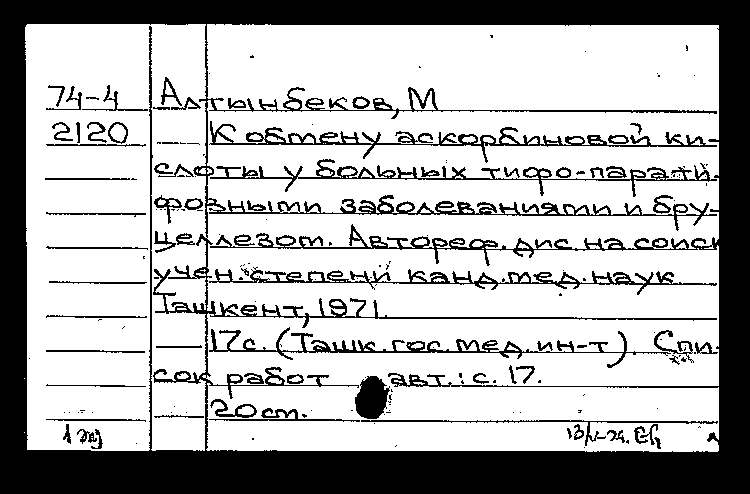 74-4 Алтынбеков, М
2120 К обмену аскорбиновой ки-
слоты у больных тифо-парати-
фозными заболеваниями и бру-
целлезом. Автореф. дис. на соиск
учен. степени канд. мед. наук
Ташкент, 1971.
17с. (Ташк. гос. мед. ин-т). Спи-
сок работ авт.: с. 17.
20 cm.